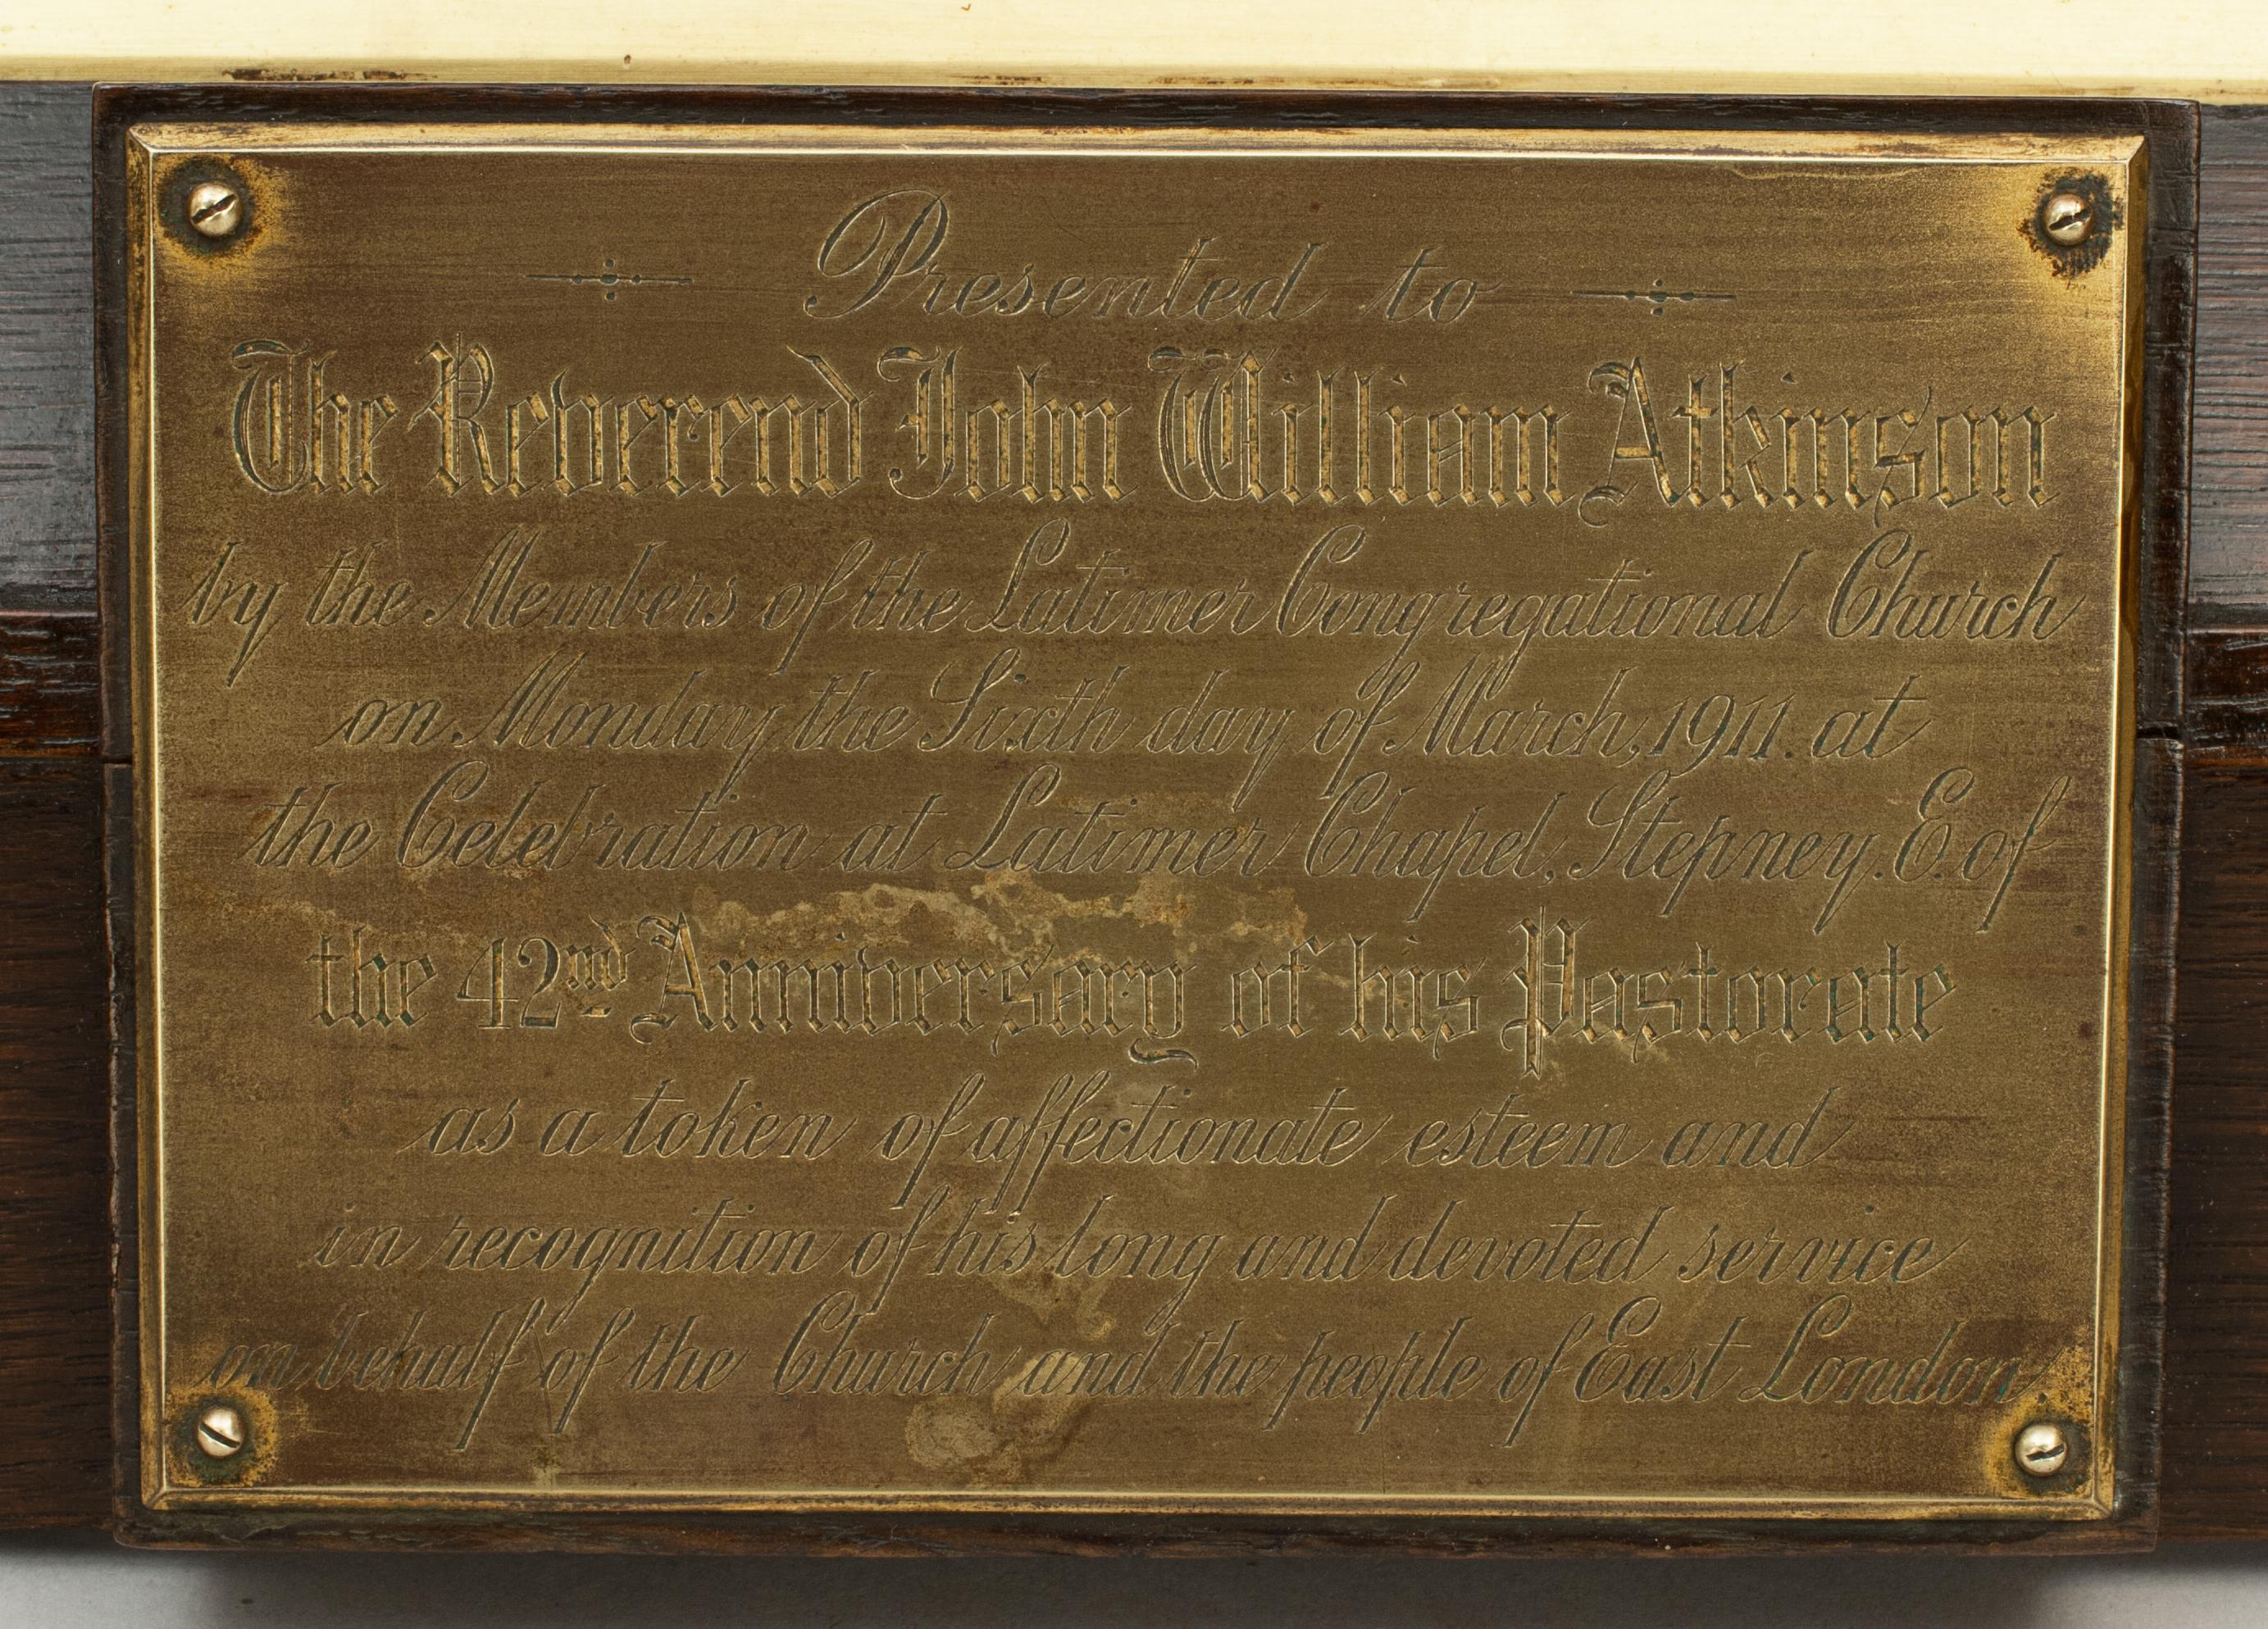 Presented to
The Reverend John William Atkinson
by the Members of the Latimer Congregational Church
on Monday the Sixth day of March, 1911. at
the Celebration at Latimer Chapel, Stepney. E. of
the 42nd Anniversary of his Pastorate
as a token of affectionate esteem and
in recognition of his long and devoted service
on behalf of the Church and the people of East London.